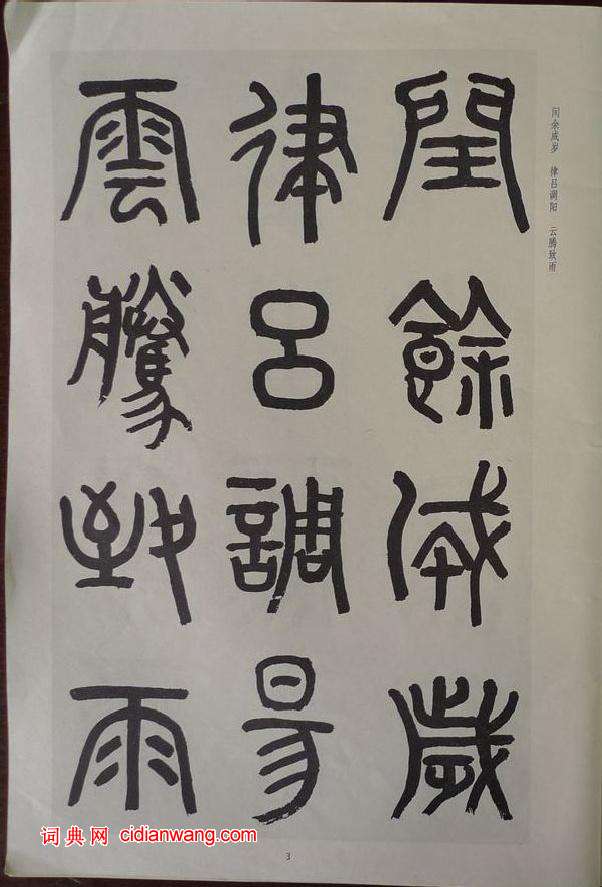 闰余成岁 律吕调阳 云腾致雨
閏餘成歲
律呂調昜
雲騰致雨
3
词典网 cidianwang.com